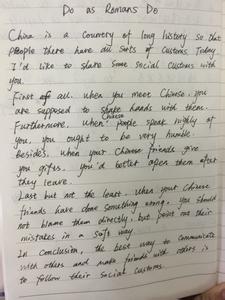 Do as Romans Do
China is a country of long history so that
people there have all sorts of customs. Today
I'd like to share some social customs with
you.
First of all, when you meet Chinese, you
are supposed to shake hands with them.
Furthermore, when Chinese people speak highly of
you, you ought to be very humble.
besides, when your Chinese friends give
you gifts, you'd better open them after
they leave.
Last but not the least, when your Chinese
friends have done something wrong, you should
not blame them directly, but point out their
mistakes in a soft way.
In conclusion, the best way to communicate
with others and make friends with others is
to follow their social customs.